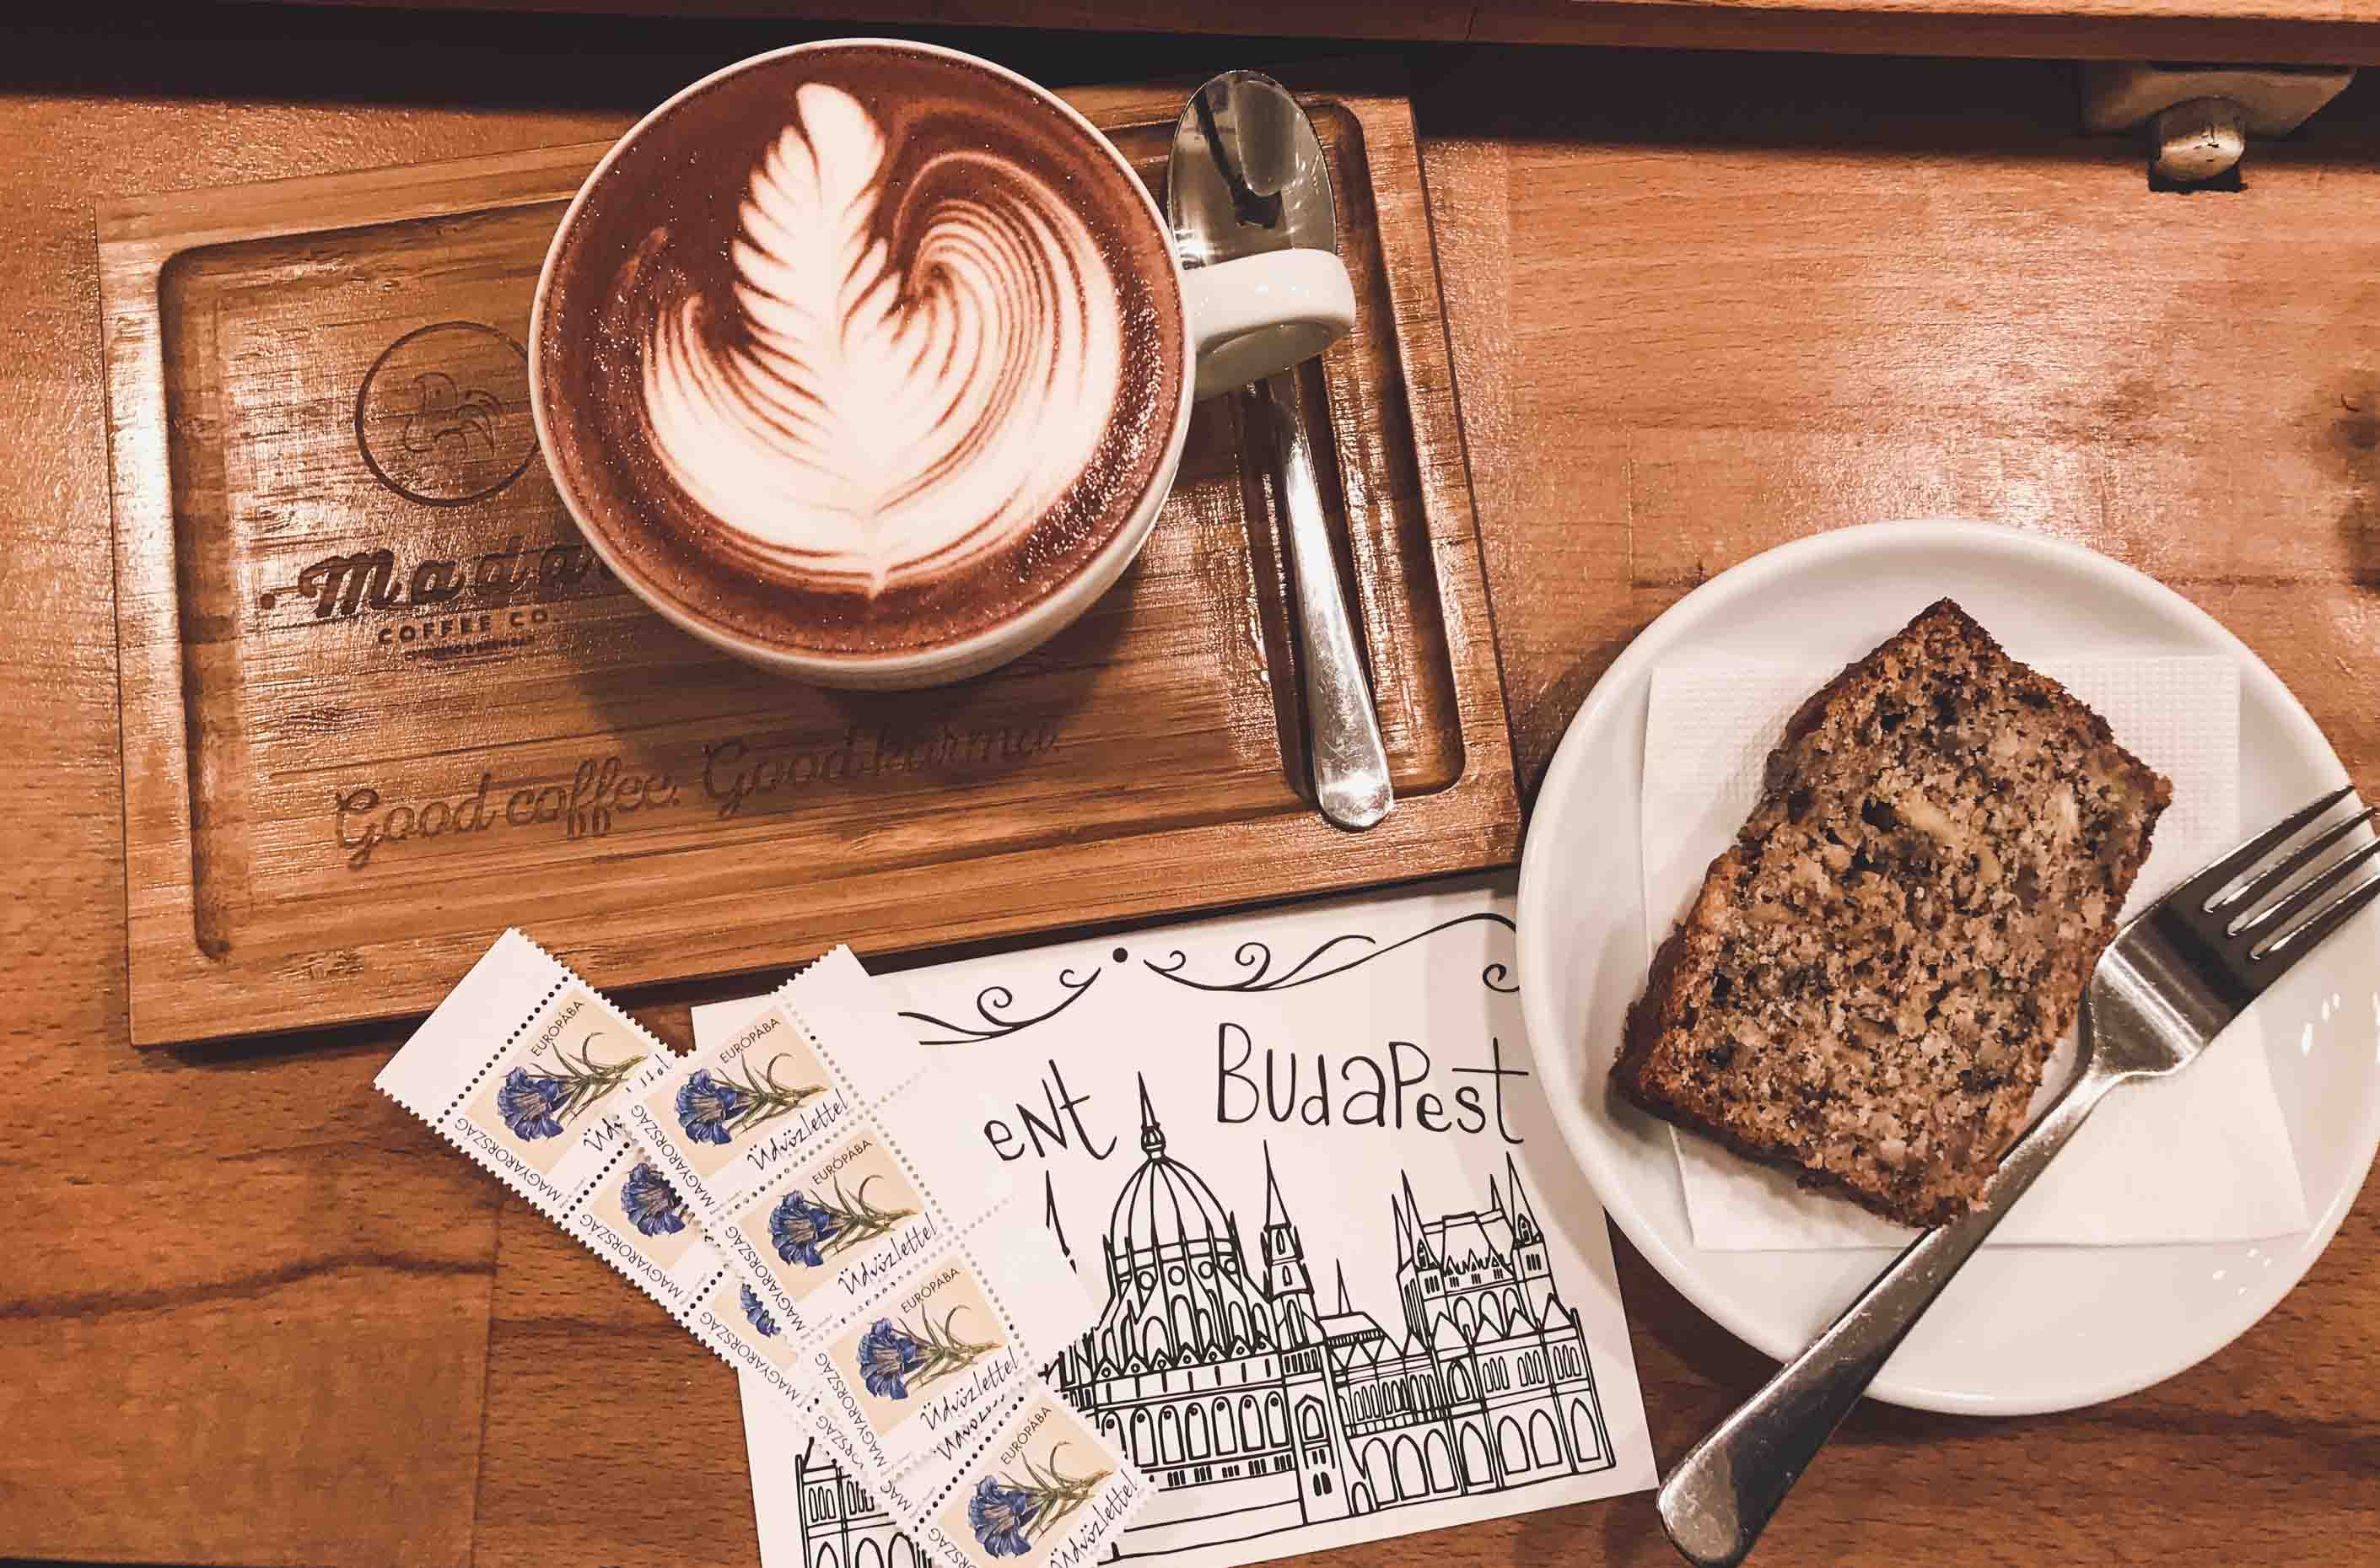 Mada
COFFEE CO.
Good coffee. Good karma.
eNt BudaPest
EURÓPÁBA
MAGYARORSZÁG
Üdv
EURÓPÁBA
MAGYARORSZÁG
Üdvözlettel
MAGYARORSZÁG
EURÓPÁBA
MAGYARORSZÁG
Üdvözlettel
MAGYARORSZÁG
EURÓPÁBA
MAGYARORSZÁG
Üdvözlettel
EURÓPÁBA
Üdvözlettel